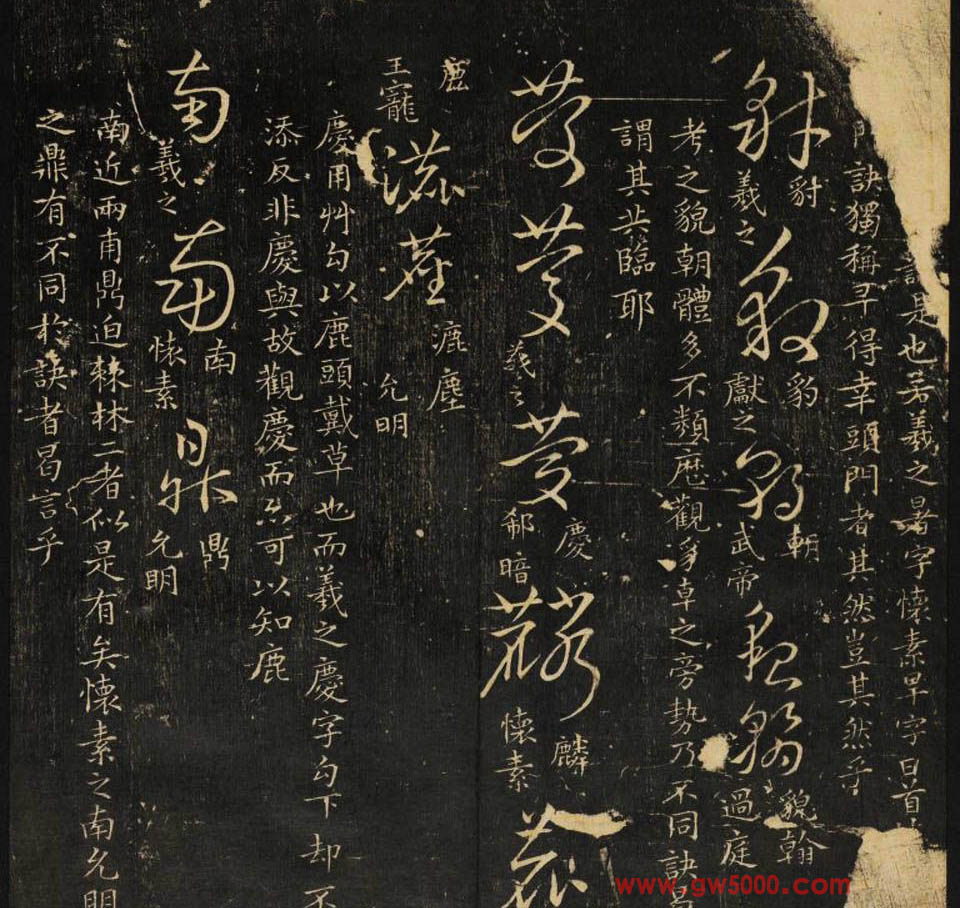 是也若羲之暑字懷素早字日首
訣獨稱早得幸頭門者其然豈其然乎
豺 豹 朝 貌 翰
羲之 獻之 武帝 過庭
考之貌朝體多不類歷觀豸卓之旁勢乃不同訣
謂其共臨耶
慶 麟
羲之 郗愔 懷素
鹿 漉 塵
王寵 允明
慶用艸勾以鹿頭戴草也而羲之慶字勾下却不
添反非慶與故觀慶而亦可以知鹿
南 南 南 鼎 鼎
羲之 懷素 允明
南近兩甫鼎迫棘林二者似是有矣懷素之南允明
之鼎有不同於訣者曷言乎
www.gw5000.com